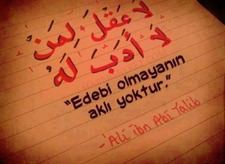 لَا عَقْلَ لِمَنْ
لَا أَدَبَ لَهُ
"Edebi olmayanın
aklı yoktur."
-'Ali ibn Abi Talib